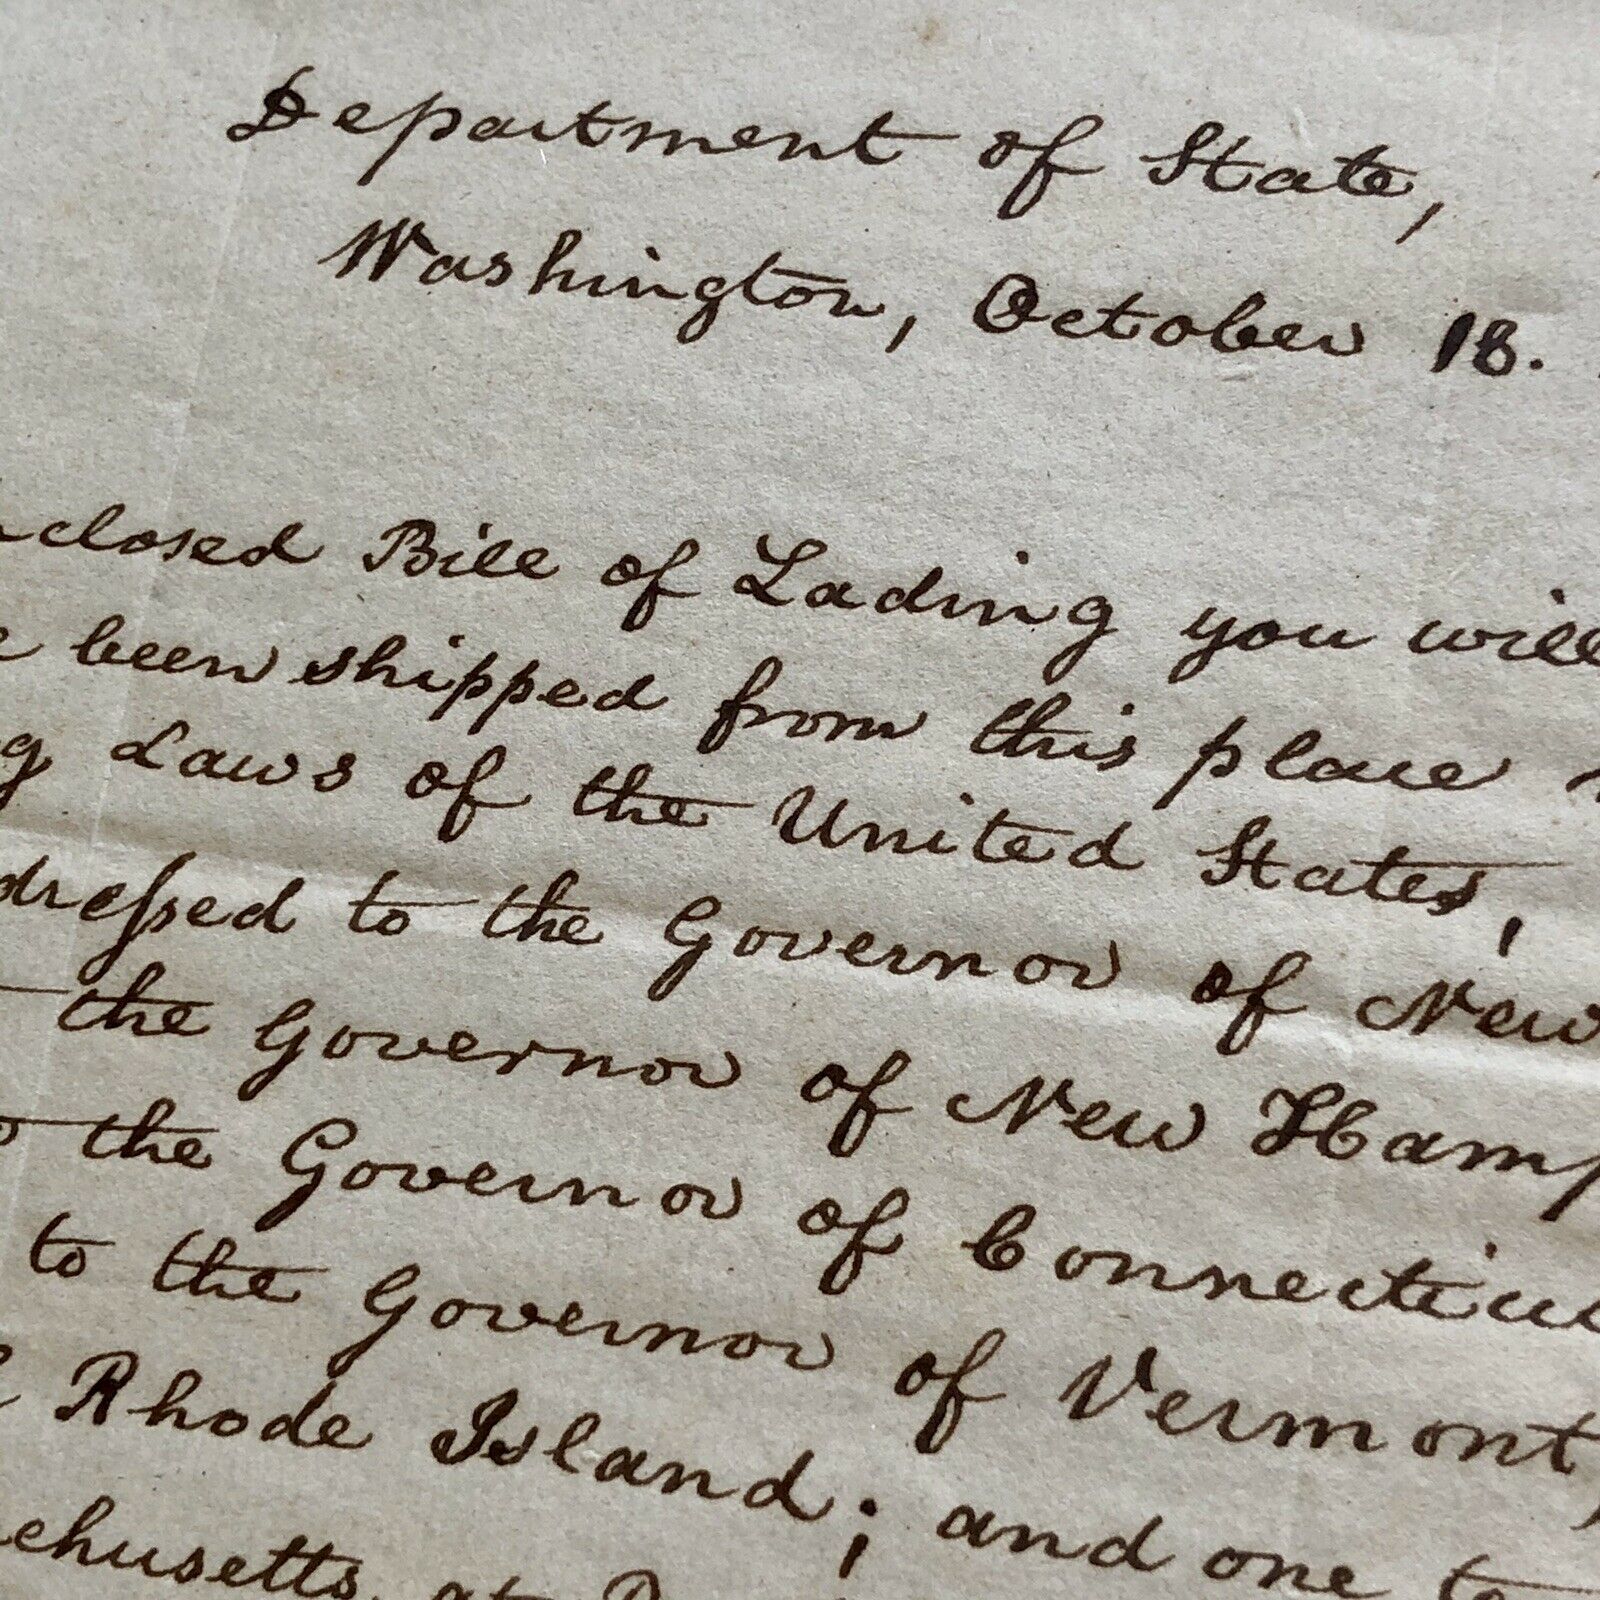 Department of State,
Washington, October 18.
closed Bill of Lading you will
been shipped from this place
Laws of the United States,
dressed to the Governor of New
the Governor of New Hamp
the Governor of Connecticu
to the Governor of Vermont,
Rhode Island; and one to
chusetts, at